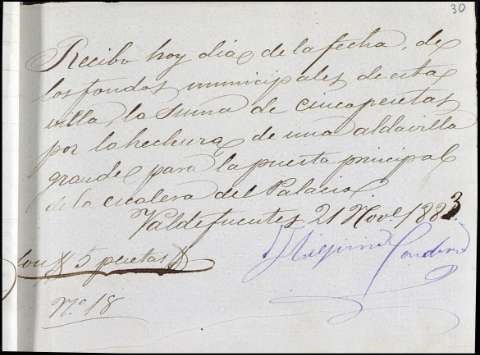 30
Recibo hoy dia de la fecha, de
los fondos municipales de esta
villa, la suma de cinco pesetas
por la hechura de una aldavilla
grande para la puerta principal
de la escalera del Palacio.
Valdefuentes 21 Nove 1883
Son $ 5 pesetas $
Nº 18